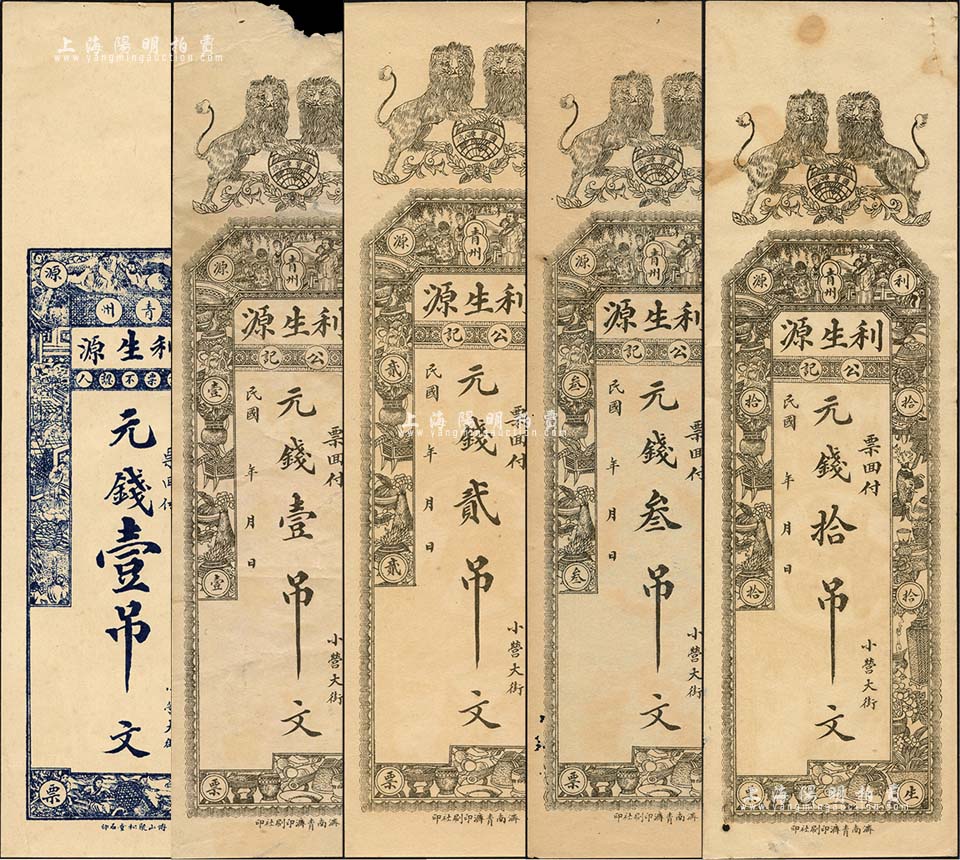 上海陽明拍賣
www.yangmingauction.com
源
青州
利生源
認票不認人
元錢壹吊文
票面付
小營大街
票
博山聚和書石印
源
青州
利生源
公記
壹
票面付
元錢壹吊文
民國 年 月 日
小營大街
壹
票
濟南青濟印刷社印
源
青州
利生源
公記
貳
票面付
元錢貳吊文
民國 年 月 日
小營大街
貳
票
濟南青濟印刷社印
源
青州
利生源
公記
叁
票面付
元錢叁吊文
民國 年 月 日
小營大街
叁
票
濟南青濟印刷社印
利
青州
源
利生源
公記
拾
拾
票面付
元錢拾吊文
民國 年 月 日
小營大街
拾
拾
生
票
濟南青濟印刷社印
上海陽明拍賣
www.yangmingauction.com
上海陽明拍賣
www.yangmingauction.com